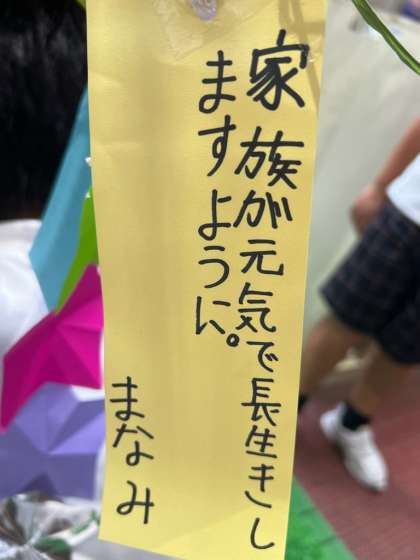 家族が元気で長生きし
ますように。
まなみ